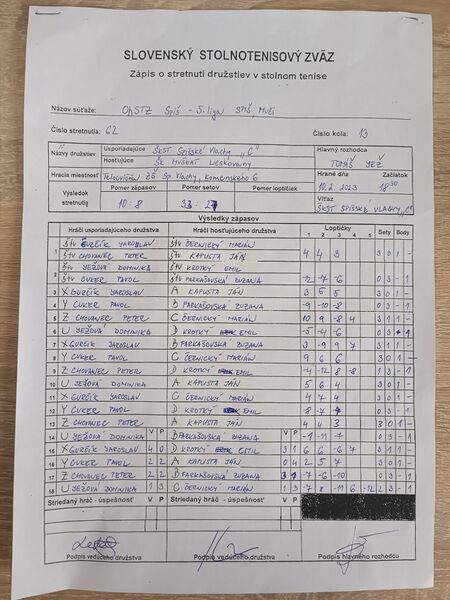 SLOVENSKÝ STOLNOTENISOVÝ ZVÄZ
Zápis o stretnutí družstiev v stolnom tenise
Názov súťaže: ObSTZ Spiš - 5. liga Muži
Číslo stretnutia: 62 Číslo kola: 13
Názvy družstiev Usporiadajúce ŠKST SPIŠSKÉ VLACHY "C" Hlavný rozhodca
Hosťujúce ŠK MUŠKÁT LIESKOVANY TOMÁŠ JEŽ
Hracia miestnosť Telocvičňa ZŠ Sp. Vlachy, Komenského 6 Hrané dňa Začiatok
10.2.2023 18 30
Výsledok stretnutia Pomer zápasov Pomer setov Pomer loptičiek Víťaz
10:8 33:27 ŠKST SPIŠSKÉ VLACHY "C"
Výsledky zápasov
Hráči usporiadajúceho družstva Hráči hosťujúceho družstva Loptičky Sety Body
1 2 3 4 5
1 štv GURČÍK JAROSLAV štv ČERNICKÝ MARIÁN
štv CHOVANEC PETER štv KAPUSTA JÁN 4 4 3 3 0 1 -
2 štv JEŽOVÁ DOMINIKA štv KROTKÝ EMIL
štv CUKER PAVOL štv FARKAŠOVSKÁ ZUZANA -12 -7 -6 0 3 - 1
3 X GURČÍK JAROSLAV A KAPUSTA JÁN 3 5 5 3 0 1 -
4 Y CUKER PAVOL B FARKAŠOVSKÁ ZUZANA -9 -10 -8 0 3 - 1
5 Z CHOVANEC PETER C ČERNICKÝ MARIÁN 10 9 -8 4 3 1 1 -
6 U JEŽOVÁ DOMINIKA D KROTKÝ EMIL -5 -4 -6 0 3 - 1
7 X GURČÍK JAROSLAV B FARKAŠOVSKÁ ZUZANA 3 -9 9 7 3 1 1 -
8 Y CUKER PAVOL C ČERNICKÝ MARIÁN 9 6 6 3 0 1 -
9 Z CHOVANEC PETER D KROTKÝ EMIL -4 -12 8 -8 1 3 - 1
10 U JEŽOVÁ DOMINIKA A KAPUSTA JÁN 5 6 4 3 0 1 -
11 X GURČÍK JAROSLAV C ČERNICKÝ MARIÁN 4 7 4 3 0 1 -
12 Y CUKER PAVOL D KROTKÝ EMIL -8 -7 0 3 - 1
13 Z CHOVANEC PETER A KAPUSTA JÁN 4 4 3 3 0 1 -
14 U JEŽOVÁ DOMINIKA V P B FARKAŠOVSKÁ ZUZANA V P -1 -11 -7 0 3 - 1
15 X GURČÍK JAROSLAV 4 0 D KROTKÝ EMIL 3 1 6 6 -6 7 3 1 1 -
16 Y CUKER PAVOL 2 2 A KAPUSTA JÁN 0 4 2 5 7 3 0 1 -
17 Z CHOVANEC PETER 2 2 B FARKAŠOVSKÁ ZUZANA 3 1 -7 -6 -10 0 3 - 1
18 U JEŽOVÁ DOMINIKA 1 3 C ČERNICKÝ MARIÁN 1 3 -7 8 -11 6 -12 2 3 - 1
Striedaný hráč - úspešnosť V P Striedaný hráč - úspešnosť V P
Podpis vedúceho družstva Podpis vedúceho družstva Podpis hlavného rozhodcu